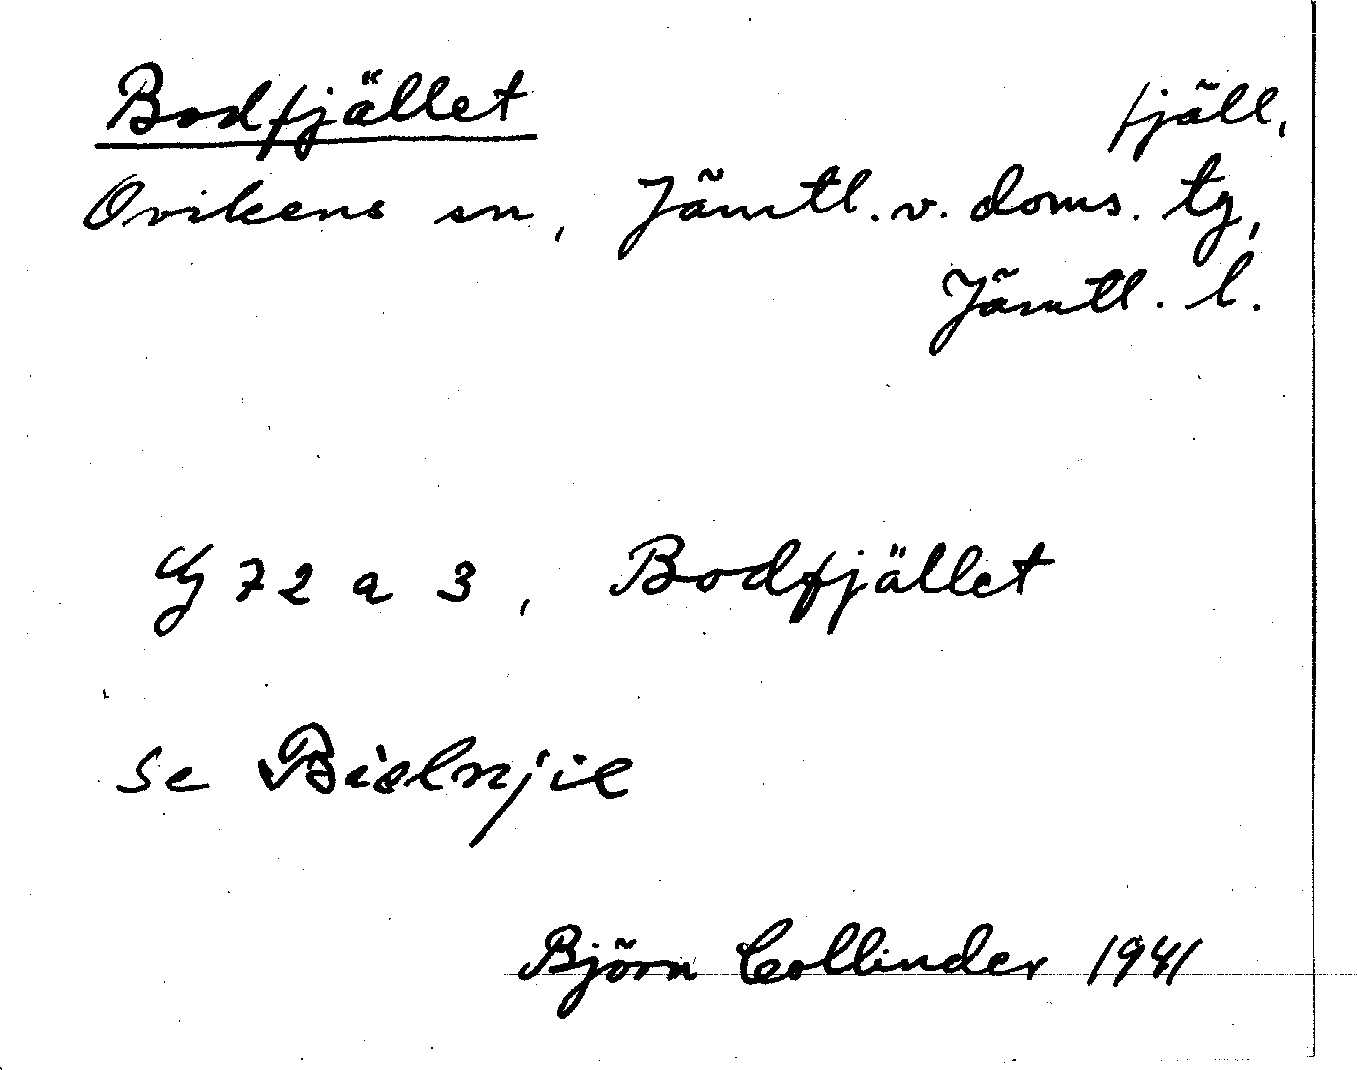 Bodfjället fjäll,
Ovikens sn, Jämtl. v. doms. tg,
Jämtl. l.
G 72 a 3, Bodfjället
se
Björn Collinder 1941